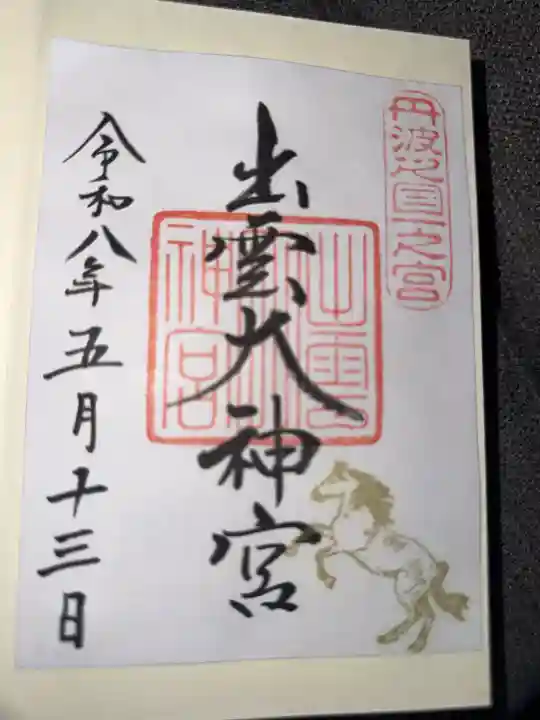 丹波國一之宮
出雲大神宮
出雲大神宮
令和八年五月十三日